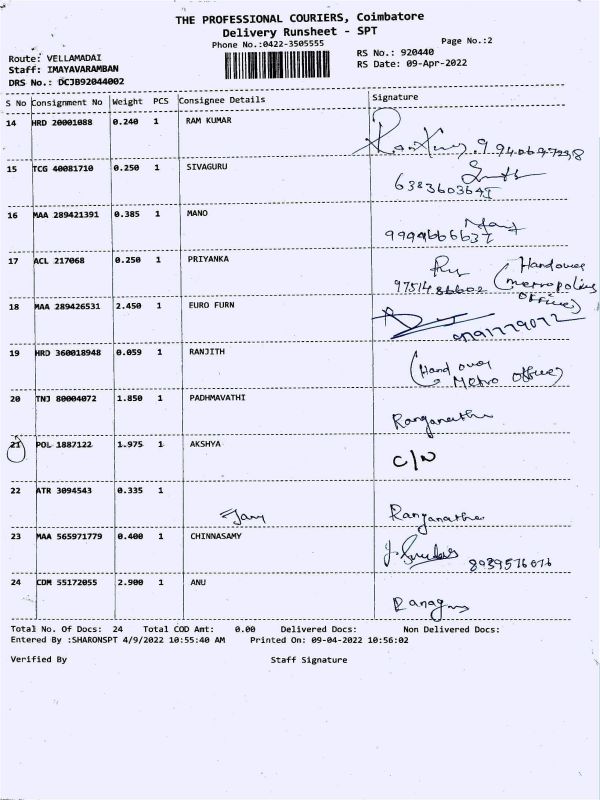 THE PROFESSIONAL COURIERS, Coimbatore
Delivery Runsheet - SPT
Phone No.:0422-3505555
Page No.:2
Route: VELLAMADAI
Staff: IMAYAVARAMBAN
DRS No.: DCJB92044002
RS No.: 920440
RS Date: 09-Apr-2022
S No Consignment No Weight PCS Consignee Details Signature
14 HRD 20001088 0.240 1 RAM KUMAR
15 TCG 40081710 0.250 1 SIVAGURU
16 MAA 289421391 0.385 1 MANO
9994666637
17 ACL 217068 0.250 1 PRIYANKA
Handover
(metropolis
office)
18 MAA 289426531 2.450 1 EURO FURN
9791779072
19 HRD 360018948 0.059 1 RANJITH
(Hand over
Metro office)
20 TNJ 80004072 1.850 1 PADHMAVATHI
Ranganatha
21 POL 1887122 1.975 1 AKSHYA
C/N
22 ATR 3094543 0.335 1
Ranganatha
23 MAA 565971779 0.400 1 CHINNASAMY
8939576076
24 CDM 55172055 2.900 1 ANU
Total No. Of Docs: 24 Total COD Amt: 0.00 Delivered Docs: Non Delivered Docs:
Entered By :SHARONSPT 4/9/2022 10:55:40 AM Printed On: 09-04-2022 10:56:02
Verified By Staff Signature